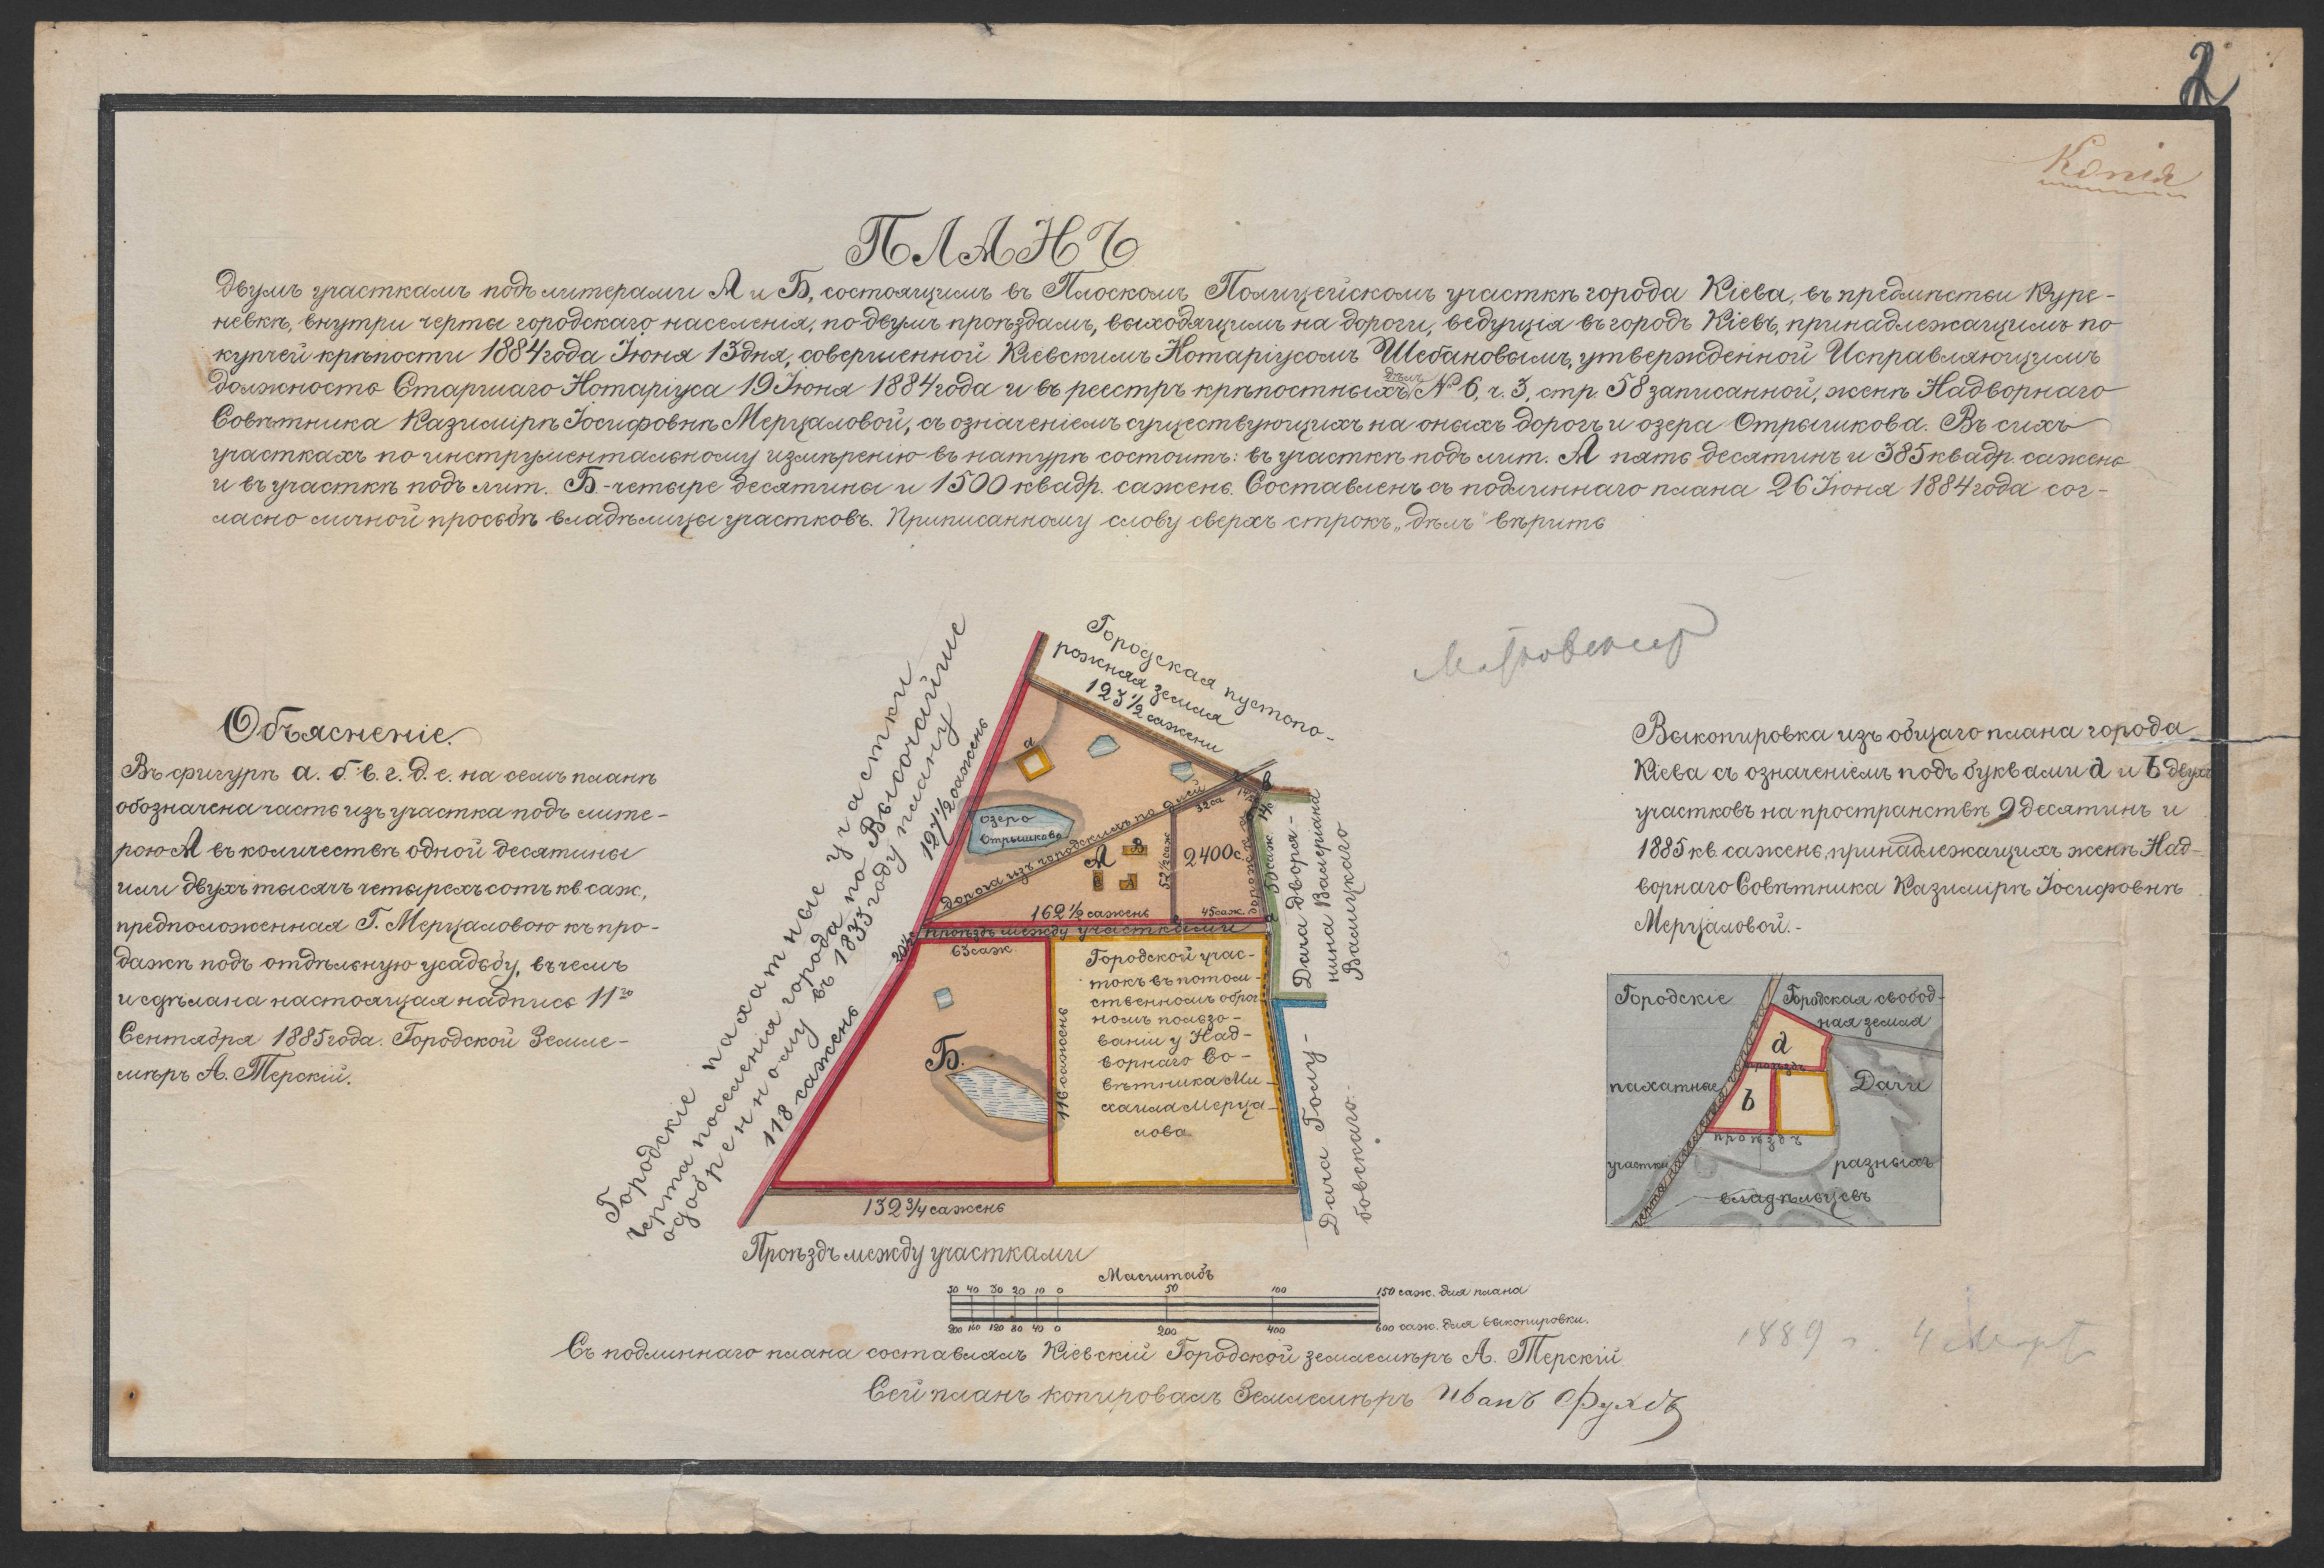 2
Копія
ПЛАНЪ
двумъ участкамъ подъ литерами А и Б, состоящимъ въ Плоскомъ Полицейскомъ участкѣ города Кіева, въ предмѣстьи Куре-
невкѣ, внутри черты городскаго населенія, по двумъ проѣздамъ, выходящимъ на дороги, ведущія въ городъ Кіевъ, принадлежащимъ по
купчей крѣпости 1884 года Іюня 13 дня, совершенной Кіевскимъ Нотаріусомъ Шебановымъ, утвержденной Исправляющимъ
дѣлъ
должность Старшаго Нотаріуса 19 Іюня 1884 года и въ реестръ крѣпостныхъ № 6, ч. 3, стр. 58 записанной, женѣ Надворнаго
Совѣтника Казимірѣ Іосифовнѣ Мерцаловой, съ означеніемъ существующихъ на оныхъ дорогъ и озера Отрышкова. Въ сихъ
участкахъ по инструментальному измѣренію въ натурѣ состоитъ: въ участкѣ подъ лит. А пять десятинъ и 385 квадр. сажень
и въ участкѣ подъ лит. Б.-четыре десятины и 1500 квадр. сажень. Составленъ съ подлиннаго плана 26 Іюня 1884 года сог-
ласно личной просьбѣ владѣлицы участковъ. Приписанному слову сверхъ строкъ „дѣлъ" вѣрить
Объясненіе.
Въ фигурѣ а. б. в. г. д. е. на семъ планѣ
обозначена часть изъ участка подъ лите-
рою А въ количествѣ одной десятины
или двухъ тысячъ четырехъ сотъ кв саж.,
предположенная Г. Мерцаловою къ про-
дажѣ подъ отдѣльную усадьбу, въ чемъ
и сдѣлана настоящая надпись 11го
Сентября 1885 года. Городской Земле-
мѣръ А. Терскій.
Городскіе пахатные участки
Черта поселенія города по Высочайше
одобренному въ 1833 году плану
127 1/2 сажень
118 сажень
20 с.
Городская пустопо-
рожняя земля
123 1/2 сажени
а
озеро
Отрышково
Дорога изъ городскихъ по дачѣ
32 са
А
В
Б
А
52 1/2 саж
2400 с.
50 саж.
14
162 1/2 сажень
45 саж.
проѣздъ между участками
63 саж.
Б.
116 сажень
Городской учас-
токъ въ потом-
ственномъ оброч
номъ пользо-
ваніи у Над-
ворнаго Со-
вѣтника Ми-
хаила Мерца-
лова
132 3/4 сажень
Проѣздъ между участками
Дача дворя-
нина Валеріана
Валицкаго
Дача Голу-
бовскаго.
Выкопировка изъ общаго плана города
Кіева съ означеніемъ подъ буквами а и b двухъ
участковъ на пространствѣ 9 десятинъ и
1885 кв. сажень, принадлежащихъ женѣ Над-
ворнаго Совѣтника Казимірѣ Іосифовнѣ
Мерцаловой.-
Городскіе
Городская свобод-
ная земля
а
проѣздъ
пахатные
Дачи
b
проѣздъ
участки
разныхъ
владѣльцевъ
Масштабъ
50 40 30 20 10 0 50 100 150 саж. для плана
200 160 120 80 40 0 200 400 600 саж. для выкопировки.
Съ подлиннаго плана составлялъ Кіевскій Городской землемѣръ А. Терскій
Сей планъ копировалъ Землемѣръ Иванъ Фуксъ
1889 г. 4 Март